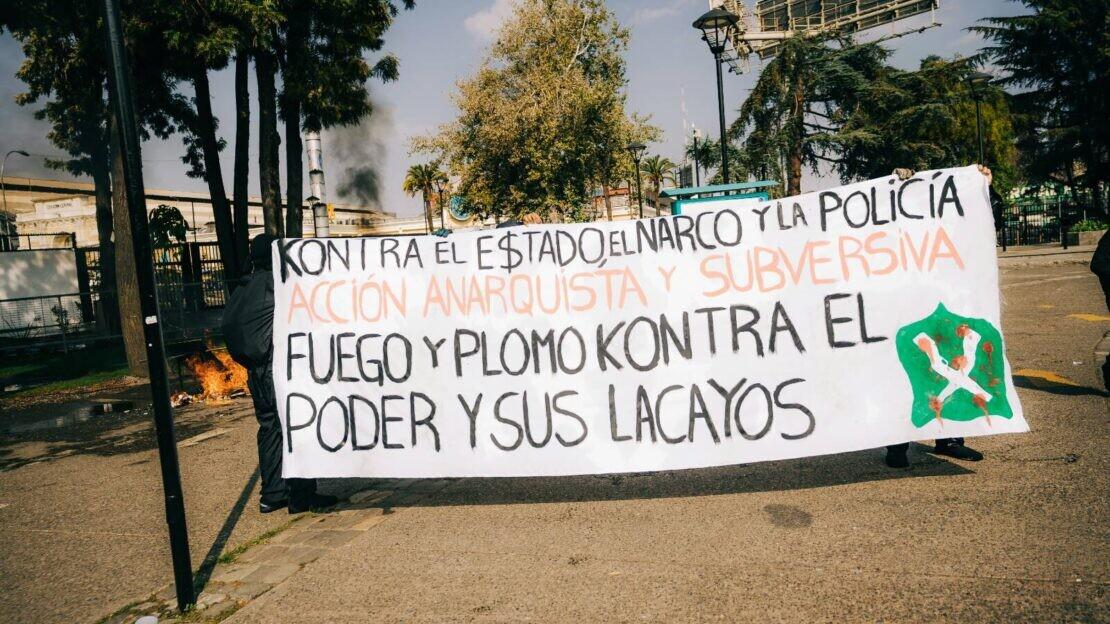 KONTRA EL E$TADO, EL NARCO Y LA POLICÍA
ACCIÓN ANARQUISTA Y SUBVERSIVA
FUEGO Y PLOMO KONTRA EL
PODER Y SUS LACAYOS